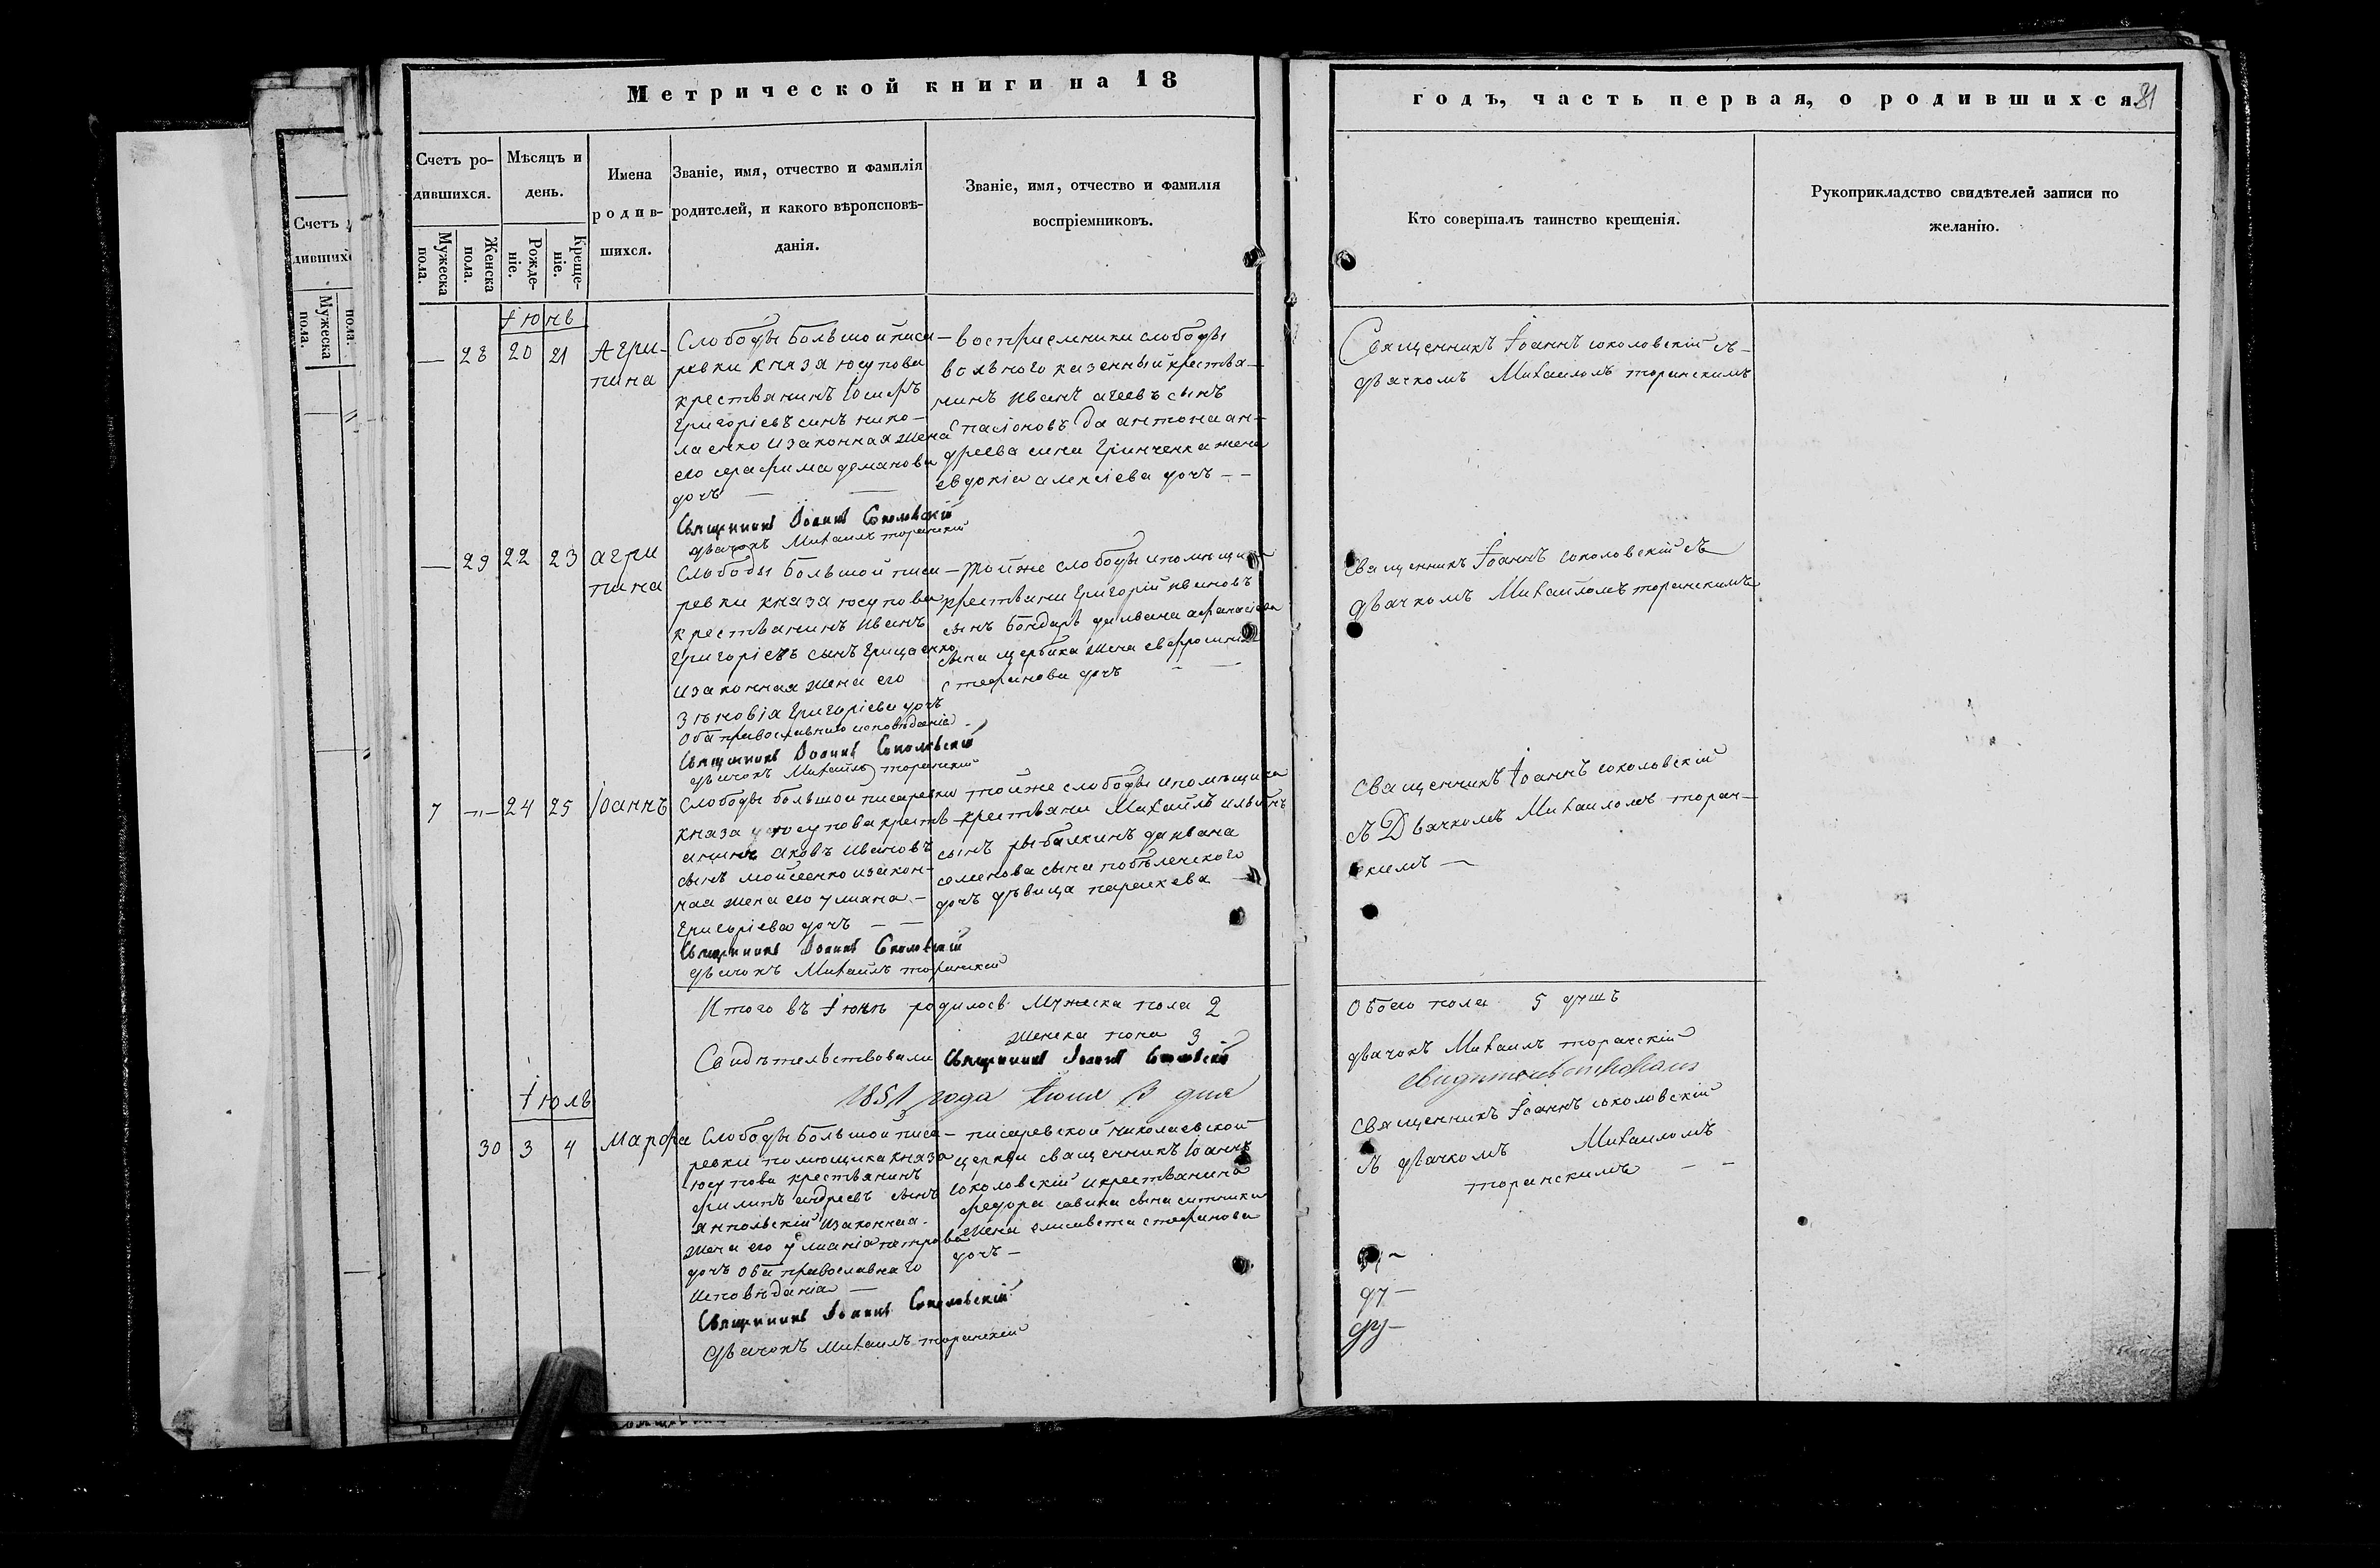 Метрической книги на 18
годъ, часть первая, о родившихся.
81
Счетъ ро-
дившихся.
Мѣсяцъ и
день.
Имена
родив-
шихся.
Званіе, имя, отчество и фамилія
родителей, и какого вѣроисповѣ-
данія.
Званіе, имя, отчество и фамилія
воспріемниковъ.
Кто совершалъ таинство крещенія.
Рукоприкладство свидѣтелей записи по
желанію.
Мужеска
пола.
Женска
пола.
Рожде-
ніе.
Креще-
ніе.
Счетъ
дивших
Мужеска
пола.
пола.
Іюнь
— 28 20 21
Агри-
пина
Слободы Большой писа-
ревки князя юсупова
крестьянинъ Іосифъ
Григоріевъ синъ нико-
лаенко изаконная жена
его серафима демянова
дочъ — —
Священникъ Іоаннъ Соколовскій
дьячокъ Михаилъ торанскій
восприемники слободы
вольного казенный крестья-
нинъ Иванъ агеевъ сынъ
да антона ан-
дреева сина Гринченка жена
евдокіа алексіева дочъ - -
Священникъ Іоаннъ соколовскій съ
дьячкомъ Михаиломъ торанскимъ
— 29 22 23
агри
пина
Слободы Большой писа-
ревки князя юсупова
крестьянинъ Иванъ
Григоріевъ сынъ Грицаенко
изаконная жена его
Зѣновія Григоріева дочъ
Оба православнаго исповѣданія
Священникъ Іоаннъ Соколовскій
дьячокъ Михаилъ торанскій
тойже слободы ипомѣщика
крестьяни Григорій Ивановъ
сынъ Бондарь даивана афанасіева
сына щербака жена евфросинія
стефанова дочъ - —
Священникъ Іоаннъ соколовскій съ
дьячкомъ Михаиломъ торанскимъ
7 —"— 24 25
Іоаннъ
Слободы большой писаревки
князя юсупова кресть-
анинъ Яковъ Ивановъ
сынъ мойсеенко изакон-
ная жена его улияна -
Григоріева дочъ — —
Священникъ Іоаннъ Соколовскій
дьячокъ Михаилъ торанскій
тойже слободы ипомѣщика
крестьяни Михаилъ ильинъ
сынъ рыбалкинъ даивана
семенова сына побѣленского
дочъ дѣвица параскева —
Священникъ Іоаннъ соколовскій
съ Дьячкомъ Михаиломъ торан-
скимъ —
Итого въ Іюнѣ родилось Мужеска пола 2
женска пола 3
Обоего пола 5 душъ
Свидѣтельствовали Священникъ Іоаннъ Соколовскій
дьячокъ Михаилъ торанскій
1851 года Іюля 3 дня
Іюль
30 3 4
Марфа
Слободы Большой писа-
ревки помющика князя
юсупова крестьянинъ
филипъ андреевъ сынъ
ямпольскій изаконная
жена его улианіа петрова
дочъ Оба православнаго
исповѣданія —
Священникъ Іоаннъ Соколовскій
Дьячокъ Михаилъ торанскій
писаревской николаевской
церкви священникъ Іоаннъ
соколовскій икрестьянина
федора савина сына ситника
жена елисавета стефанова
дочъ —
Священникъ Іоаннъ соколовскій
съ дьячкомъ Михаиломъ
торанскимъ — -